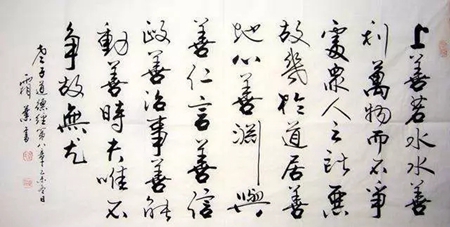 上善若水水善
利萬物而不爭
處衆人之所惡
故幾於道居善
地心善淵與
善仁言善信
政善治事善能
動善時夫唯不
爭故無尤
老子道德經第八章
霜葉書